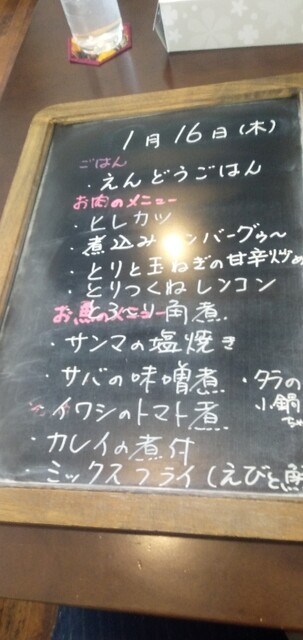 1月16日(木)
ごはん
・えんどうごはん
お肉のメニュー
・ヒレカツ
・煮込みハンバーグゥ〜
・とりと玉ねぎの甘辛炒め
・とりつくねレンコン
・とろとろ角煮
お魚のメニュー
・サンマの塩焼き
・サバの味噌煮
・タラの
小鍋
・イワシのトマト煮
・カレイの煮付
・ミックスフライ(えびと